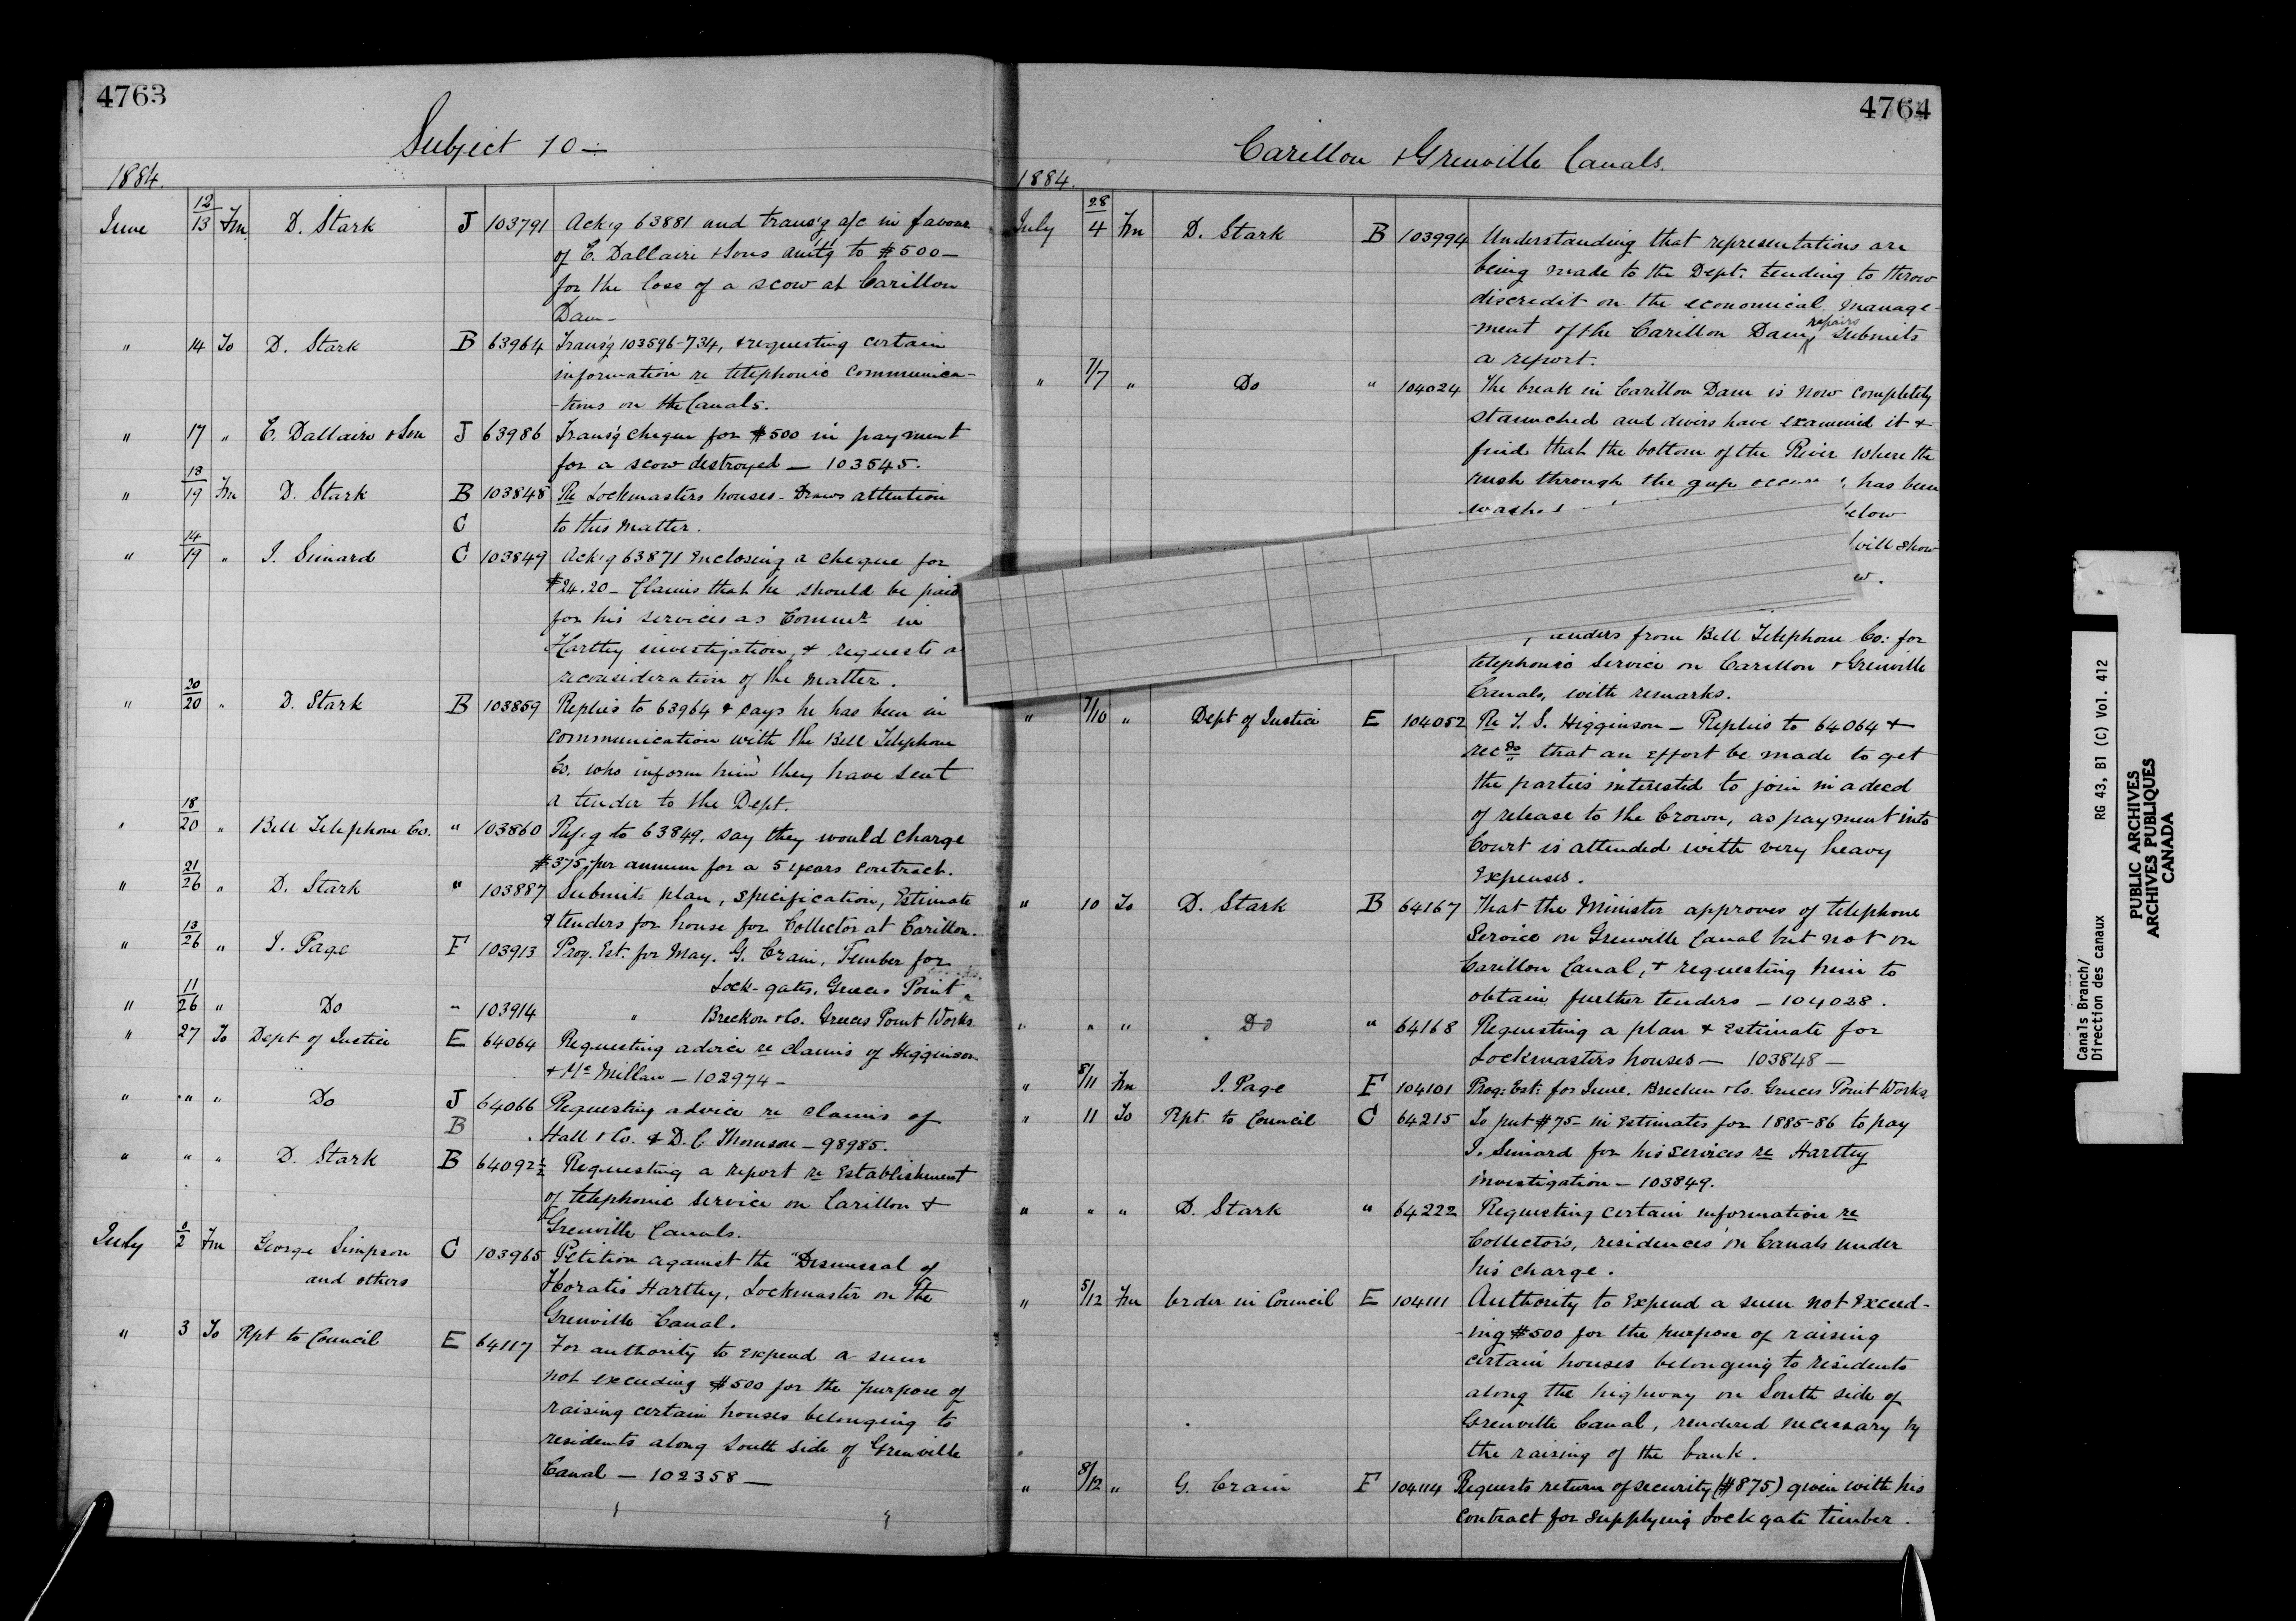 4763
Subject 10 —
1884.
June 12/13 Fm. D. Stark J 103791 Ack'g 63881 and trans'g a/c in favour
of E. Dallaire & Sons am't'g to $500—
for the loss of a scow at Carillon
Dam—
" 14 To D. Stark B 63964 Trans'g 103596-734, & requesting certain
information re telephonic communica-
-tions on the Canals.
" 17 " E. Dallaire & Son J 63986 Trans'g cheque for $500 in payment
for a scow destroyed — 103545.
" 18/19 Fm D. Stark B 103848 Re Lockmasters houses - Draws attention
C to this matter.
" 14/19 " J. Simard C 103849 Ack'g 63871 Enclosing a cheque for
$24.20 — Claims that he should be paid
for his services as Commr. in
Harttey investigation, & requests a
reconsideration of the matter.
" 20/20 " D. Stark B 103859 Replies to 63964 & says he has been in
communication with the Bell Telephone
Co. who inform him they have sent
a tender to the Dept.
" 18/20 " Bell Telephone Co. " 103860 Ref'g to 63849. say they would charge
$375 per annum for a 5 years contract.
" 21/26 " D. Stark " 103887 Submits plan, specification, Estimate
& tenders for house for Collector at Carillon.
" 13/26 " J. Page F 103913 Prog. Est. for May. G. Crain, Timber for
Lock-gates. Greeces Point
" 11/26 " Do " 103914 " Breckon & Co. Greeces Point Works
" 27 To Dept of Justice E 64064 Requesting advice re claims of Higginson
& McMillan — 102974 —
" " " Do J 64066 Requesting advice re claims of
B Hall & Co. & D. C. Thomson — 98985.
" " " D. Stark B 64092½ Requesting a report re Establishment
of telephonic service on Carillon &
Grenville Canals.
July /2 Fm George Simpson C 103965 Petition against the Dismissal of
and others Horatio Harttey, Lockmaster on the
Grenville Canal.
" 3 To Rpt to Council E 64117 For authority to expend a sum
not exceeding $500 for the purpose of
raising certain houses belonging to
residents along South side of Grenville
Canal — 102358 —
4764
Carillon & Grenville Canals.
1884.
July 28/4 Fm D. Stark B 103994 Understanding that representations are
being made to the Dept. tending to throw
discredit on the economical manage-
-ment of the Carillon Dam repairs submits
a report.
" 7/7 " Do " 104024 The break in Carillon Dam is now completely
staunched and divers have examined it &
find that the bottom of the River where the
rush through the gap has been
elow
will show
w.
enders from Bell Telephone Co: for
telephonic Service on Carillon & Grenville
Canals, with remarks.
" 7/10 " Dept of Justice E 104052 Re T. S. Higginson — Replies to 64064 &
recds that an effort be made to get
the parties interested to join in a deed
of release to the Crown, as payment into
Court is attended with very heavy
Expenses.
" 10 To D. Stark B 64167 That the Minister approves of telephone
Service on Grenville Canal but not on
Carillon Canal, & requesting him to
obtain further tenders — 104028.
" " " Do " 64168 Requesting a plan & Estimate for
Lockmasters houses — 103848 —
" 8/11 Fm J. Page F 104101 Prog: Est: for June. Brecken & Co. Greeces Point Works.
" 11 To Rpt. to Council C 64215 To put $75- in Estimates for 1885-86 to pay
J. Simard for his services re Harttey
investigation — 103849.
" " " D. Stark " 64222 Requesting certain information re
Collector's, residences on Canals under
his charge.
" 5/12 Fm Order in Council E 104111 Authority to Expend a sum not Exceed-
-ing $500 for the purpose of raising
certain houses belonging to residents
along the highway on South side of
Grenville Canal, rendered necessary by
the raising of the bank.
" 8/12 " G. Crain F 104114 Requests return of security ($875) given with his
contract for supplying Lock gate timber.
Canals Branch/
Direction des canaux
RG 43, B1 (C) Vol. 412
PUBLIC ARCHIVES
ARCHIVES PUBLIQUES
CANADA